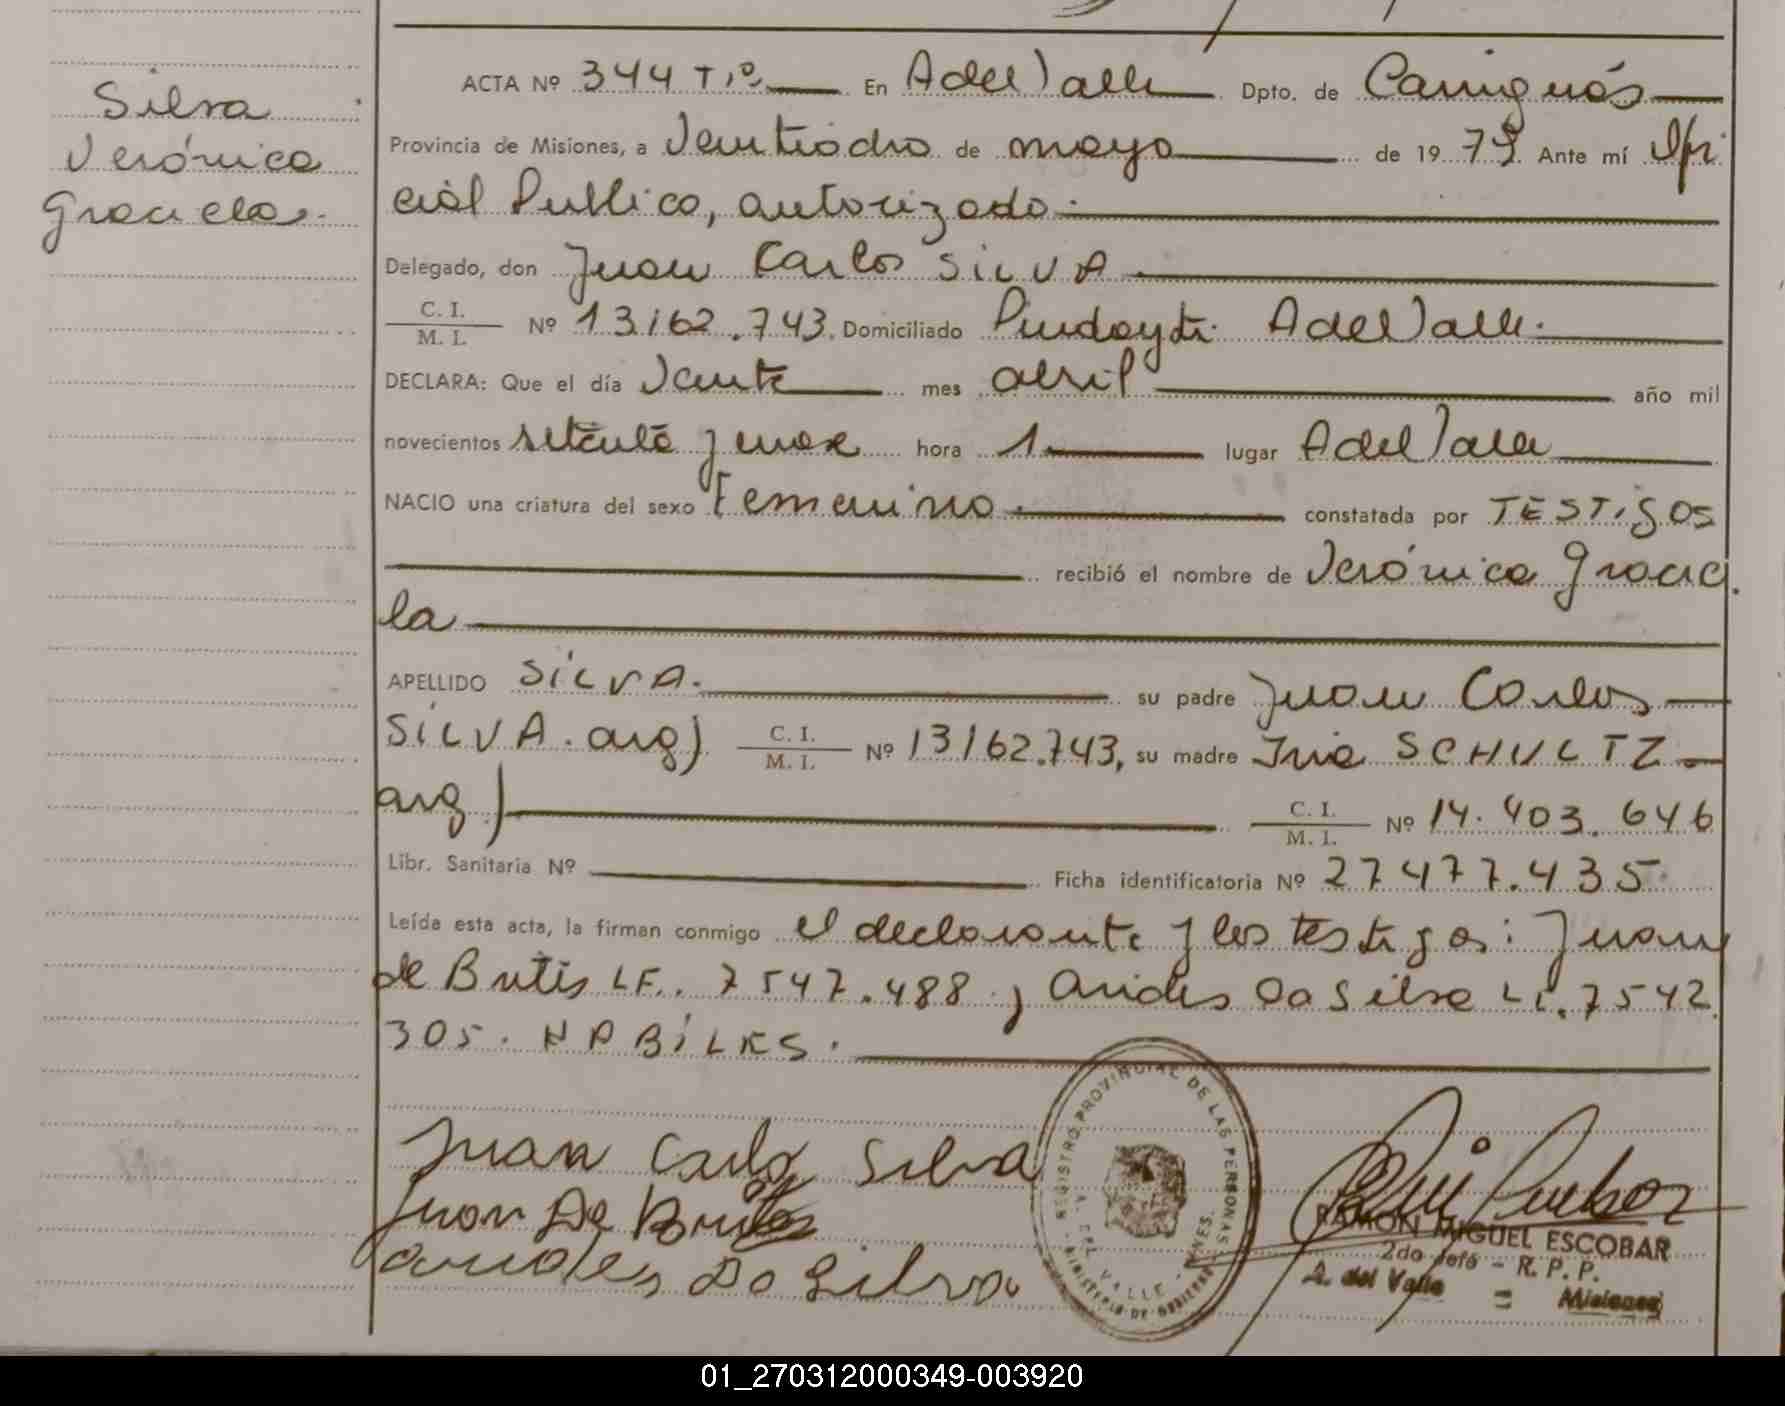 Silva
Verónica
Graciela.
ACTA Nº 344 Tº En A del Valle Dpto. de Cainguás
Provincia de Misiones, a Veintiocho de mayo de 1979. Ante mí Ofi
cial Publico, autorizado.
Delegado, don Juan Carlos SILVA
C. I.
M. I. Nº 13162.743. Domiciliado Pindayti. A del Valle.
DECLARA: Que el día Veinte mes abril año mil
novecientos setenta y nueve hora 1 lugar A del Valle
NACIO una criatura del sexo Femenino. constatada por TESTigos
recibió el nombre de Verónica Gracie
la
APELLIDO SiLVA. su padre Juan Carlos
SiLVA. arg) C. I.
M. I. Nº 13162.743, su madre SCHULTZ
arg) C. I.
M. I. Nº 14.403.646
Libr. Sanitaria Nº Ficha identificatoria Nº 27477.435.
Leída esta acta, la firman conmigo el declarante y los testigos: Juan
de Britis LE. 7547.488 y Arides Da Silva LE. 7542.
305. HABiLES.
Juan Carlos Silva
Juan De Brites
arides Da Silva
REGISTRO PROVINCIAL DE LAS PERSONAS
A. DEL VALLE - MNES.
MINISTERIO DE GOBIERNO
RAMON MIGUEL ESCOBAR
2do Jefe - R. P. P.
A. del Valle = Misiones
01_270312000349-003920